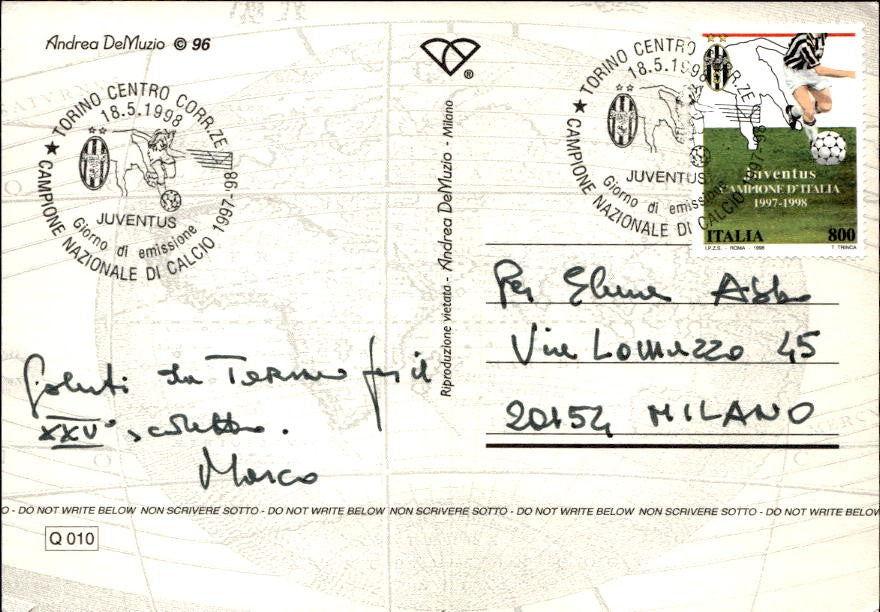 Andrea DeMuzio © 96
®
★ TORINO CENTRO CORR.ZE
18.5.1998
JUVENTUS
Giorno di emissione
CAMPIONE NAZIONALE DI CALCIO 1997-98
★ TORINO CENTRO CORR.ZE
18.5.1998
JUVENTUS
Giorno di emissione
CAMPIONE NAZIONALE DI CALCIO 1997-98
Juventus
CAMPIONE D'ITALIA
1997-1998
ITALIA 800
I.P.Z.S. - ROMA - 1998 T. TRINCA
Riproduzione vietata - Andrea DeMuzio - Milano
Saluti da Torino per il
XXV° scudetto.
Marco
Per
Via Lomazzo 45
20154 MILANO
O - DO NOT WRITE BELOW NON SCRIVERE SOTTO - DO NOT WRITE BELOW NON SCRIVERE SOTTO - DO NOT WRITE BELOW NON SCRIVERE SOTTO - DO NOT WRITE BELOW
Q 010